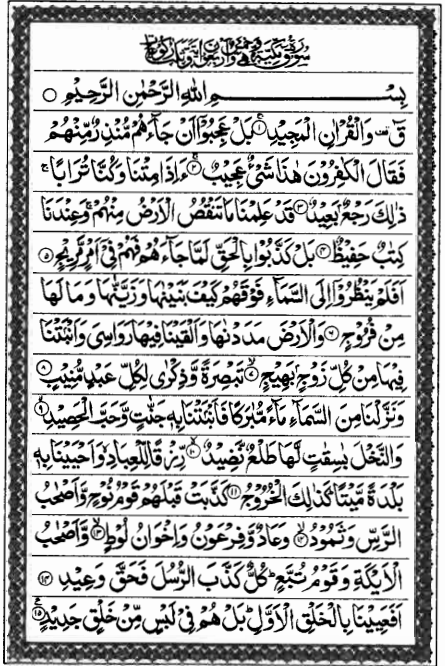 سورة ق مكية وهي خمس واربعون اية وثلث ركوعات
بِسْمِ اللهِ الرَّحْمٰنِ الرَّحِيْمِ ○
قٓ ۚ وَالْقُرْاٰنِ الْمَجِيْدِ ۱ بَلْ عَجِبُوْۤا اَنْ جَآءَهُمْ مُّنْذِرٌ مِّنْهُمْ
فَقَالَ الْكٰفِرُوْنَ هٰذَا شَیْءٌ عَجِيْبٌ ۲ ءَاِذَا مِتْنَا وَكُنَّا تُرَابًا ۚ
ذٰلِكَ رَجْعٌۢ بَعِيْدٌ ۳ قَدْ عَلِمْنَا مَا تَنْقُصُ الْاَرْضُ مِنْهُمْ ۚ وَعِنْدَنَا
كِتٰبٌ حَفِيْظٌ ۴ بَلْ كَذَّبُوْا بِالْحَقِّ لَمَّا جَآءَهُمْ فَهُمْ فِیْۤ اَمْرٍ مَّرِيْجٍ ۵
اَفَلَمْ يَنْظُرُوْۤا اِلَى السَّمَآءِ فَوْقَهُمْ كَيْفَ بَنَيْنٰهَا وَزَيَّنّٰهَا وَمَا لَهَا
مِنْ فُرُوْجٍ ۶ وَالْاَرْضَ مَدَدْنٰهَا وَاَلْقَيْنَا فِيْهَا رَوَاسِیَ وَاَنْۢبَتْنَا
فِيْهَا مِنْ كُلِّ زَوْجٍۭ بَهِيْجٍ ۷ تَبْصِرَةً وَّذِكْرٰى لِكُلِّ عَبْدٍ مُّنِيْبٍ ۸
وَنَزَّلْنَا مِنَ السَّمَآءِ مَآءً مُّبٰرَكًا فَاَنْۢبَتْنَا بِهٖ جَنّٰتٍ وَّحَبَّ الْحَصِيْدِ ۹
وَالنَّخْلَ بٰسِقٰتٍ لَّهَا طَلْعٌ نَّضِيْدٌ ۱۰ رِّزْقًا لِّلْعِبَادِ ۙ وَاَحْيَيْنَا بِهٖ
بَلْدَةً مَّيْتًا ؕ كَذٰلِكَ الْخُرُوْجُ ۱۱ كَذَّبَتْ قَبْلَهُمْ قَوْمُ نُوْحٍ وَّاَصْحٰبُ
الرَّسِّ وَثَمُوْدُ ۱۲ وَعَادٌ وَّفِرْعَوْنُ وَاِخْوَانُ لُوْطٍ ۱۳ وَّاَصْحٰبُ
الْاَيْكَةِ وَقَوْمُ تُبَّعٍ ؕ كُلٌّ كَذَّبَ الرُّسُلَ فَحَقَّ وَعِيْدِ ۱۴
اَفَعَيِيْنَا بِالْخَلْقِ الْاَوَّلِ ؕ بَلْ هُمْ فِیْ لَبْسٍ مِّنْ خَلْقٍ جَدِيْدٍ ۱۵